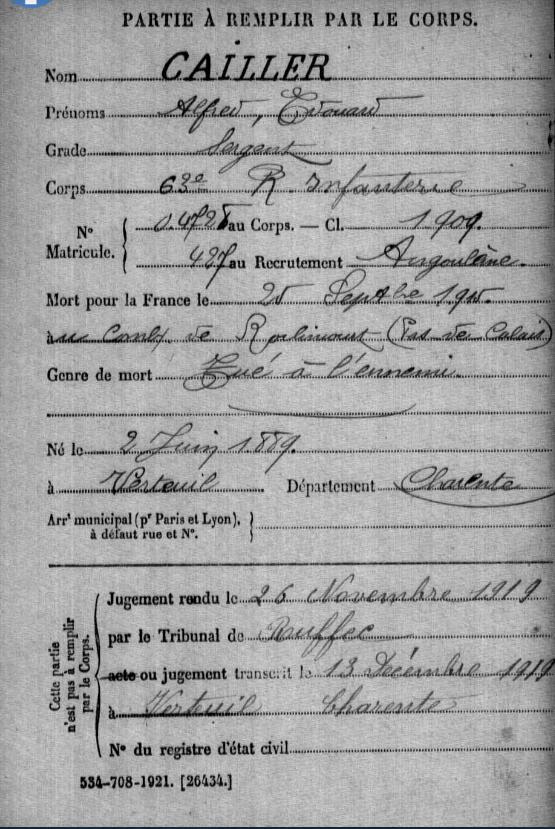 PARTIE À REMPLIR PAR LE CORPS.
Nom CAILLER
Prénoms Alfred, Edouard
Grade Sergent
Corps 63e R. Infanterie
N° Matricule. { au Corps. — Cl. 1909.
487 au Recrutement Angoulême.
Mort pour la France le 25 Septbre 1915.
à au Combt de Roclincourt (Pas de Calais)
Genre de mort Tué à l'ennemi
Né le 2 Juin 1889.
à Verteuil Département Charente
Arrt municipal (pr Paris et Lyon),
à défaut rue et N°.
Cette partie n'est pas à remplir par le Corps.
Jugement rendu le 26 Novembre 1919
par le Tribunal de Ruffec
acte ou jugement transcrit le 13 Décembre 1919
à Verteuil Charente
N° du registre d'état civil
534-708-1921. [26434.]